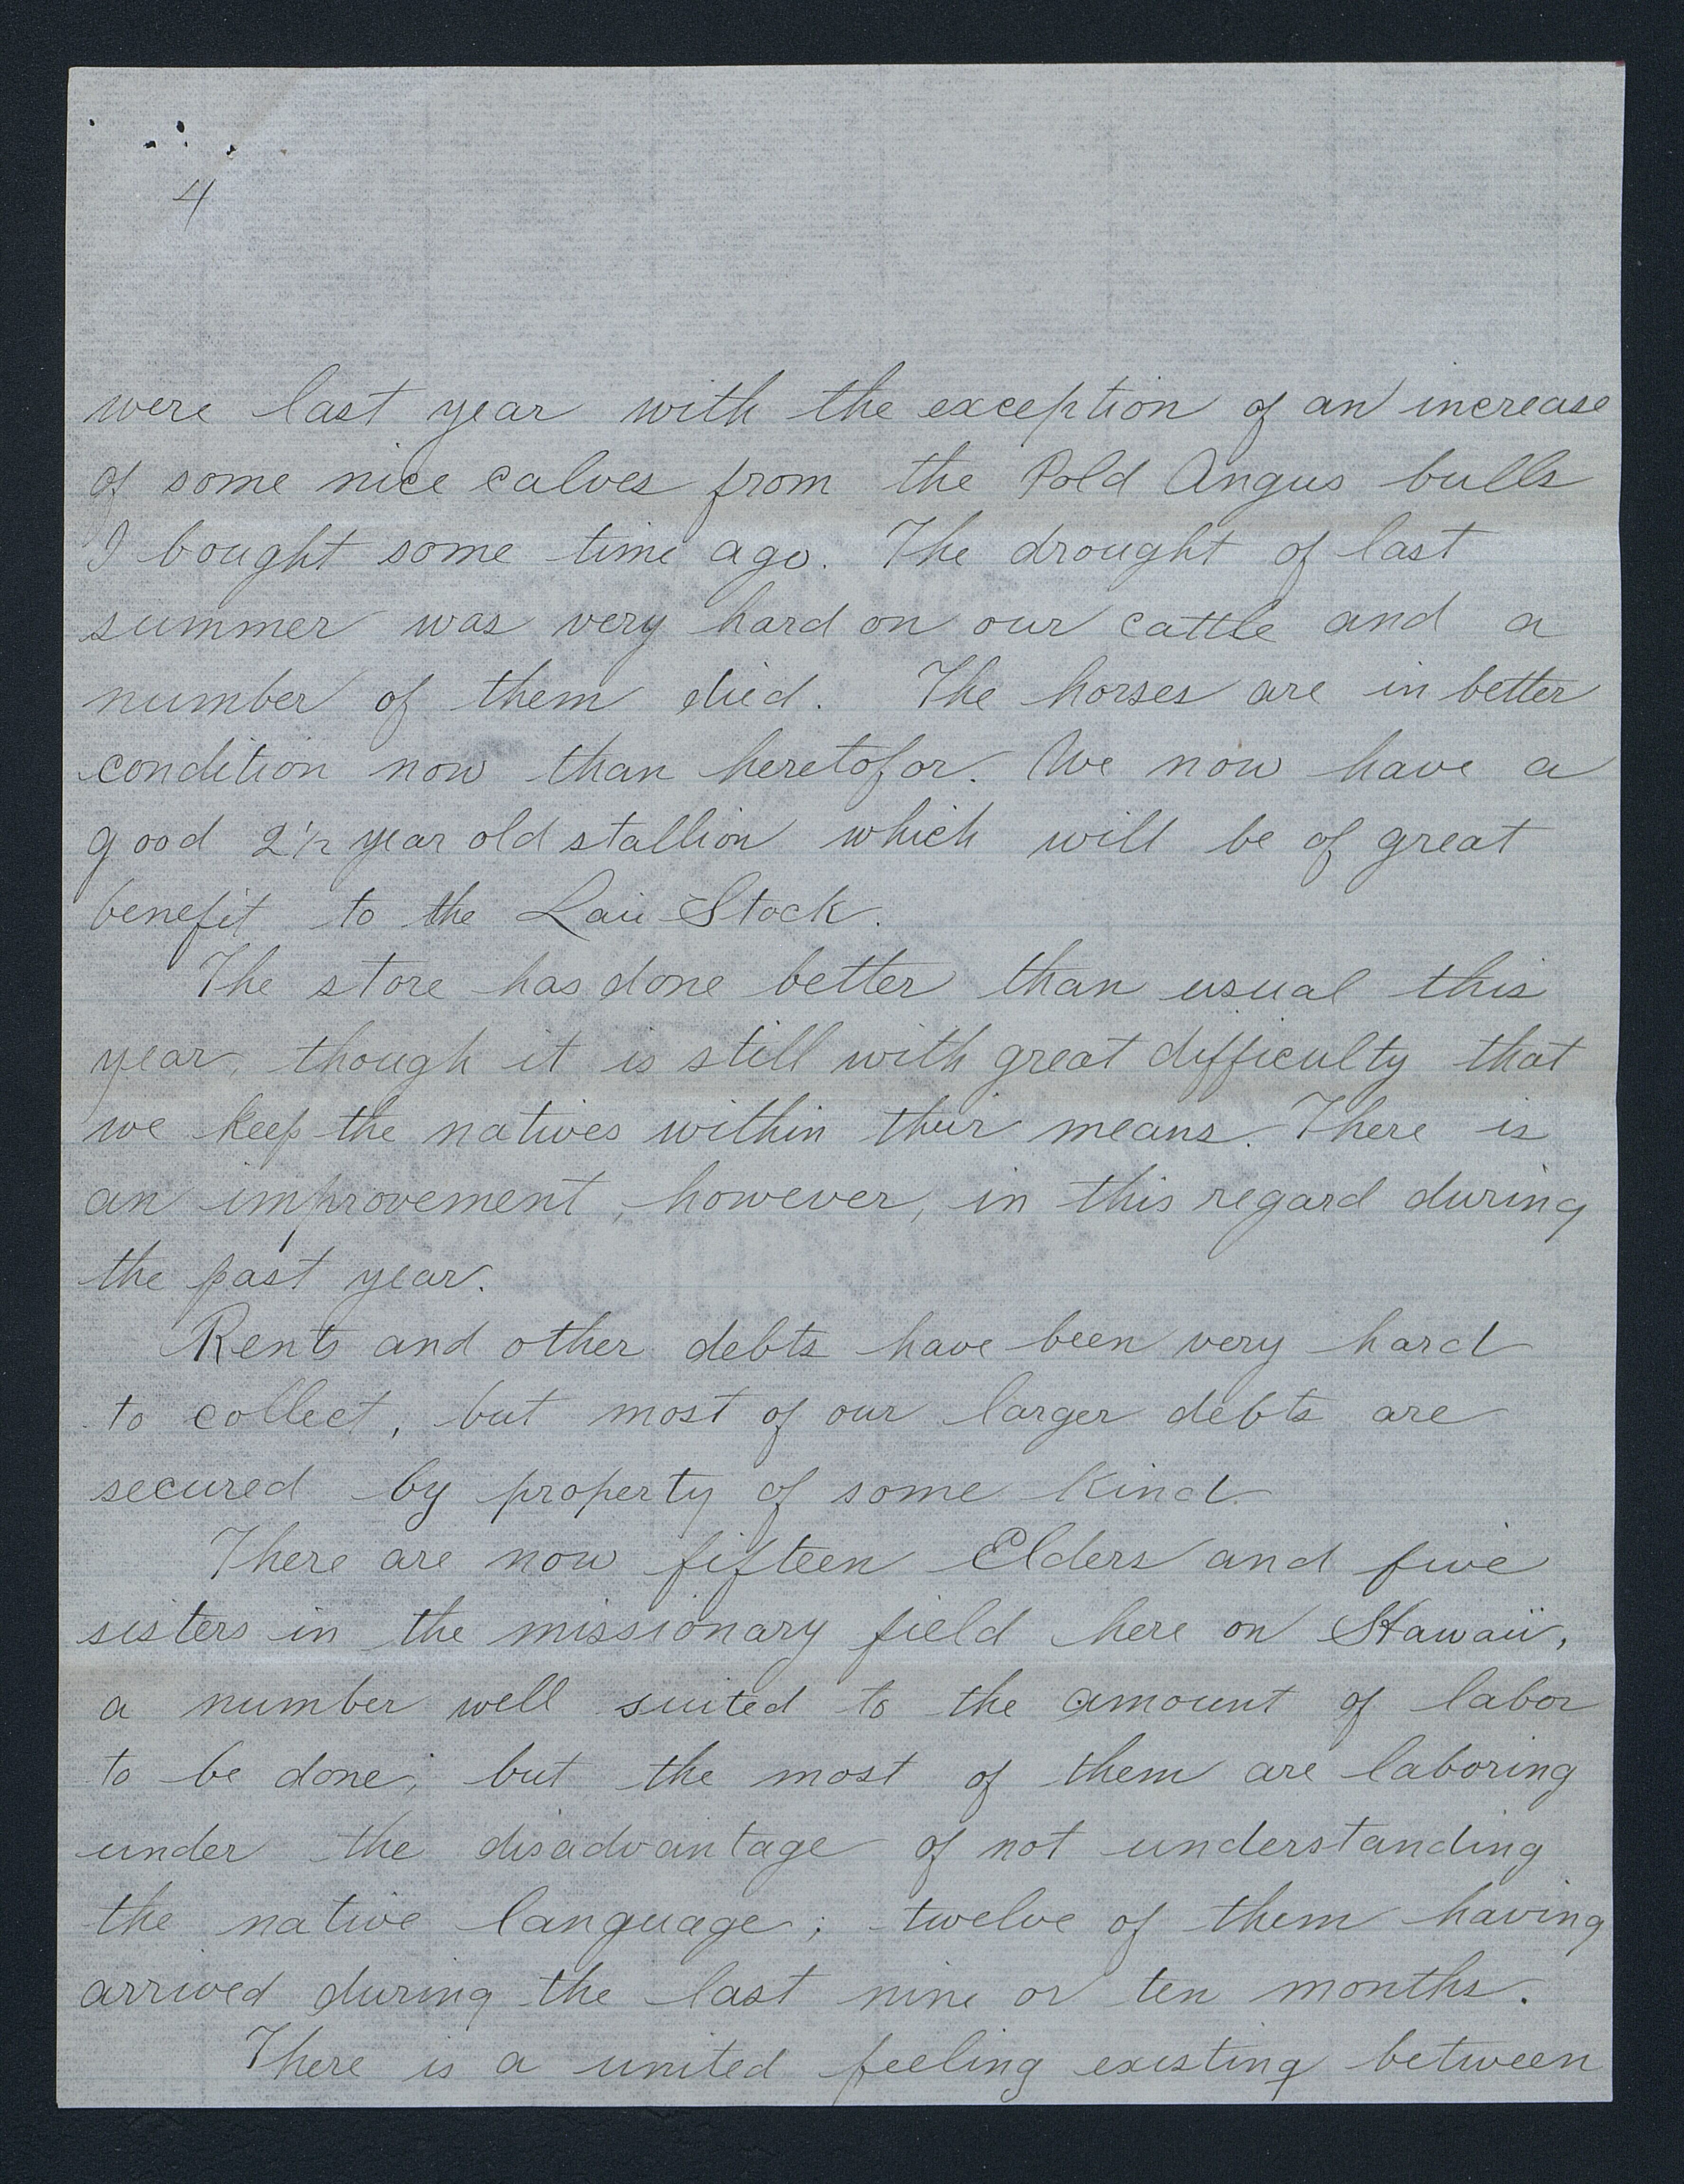 4
were last year with the exception of an increase
of some nice calves from the Pold Angus bulls
I bought some time ago. The drought of last
summer was very hard on our cattle and a
number of them died. The horses are in better
condition now than heretofor. We now have a
good 2 1/2 year old stallion which will be of great
benefit to the Laii Stock.
The store has done better than usual this
year, though it is still with great difficulty that
we keep the natives within their means. There is
an improvement, however, in this regard during
the past year.
Rents and other debts have been very hard
to collect, but most of our larger debts are
secured by property of some kind
There are now fifteen Elders and five
sisters in the missionary field here on Hawaii,
a number well suited to the amount of labor
to be done; but the most of them are laboring
under the disadvantage of not understanding
the native language; twelve of them having
arrived during the last nine or ten months.
There is a united feeling existing between